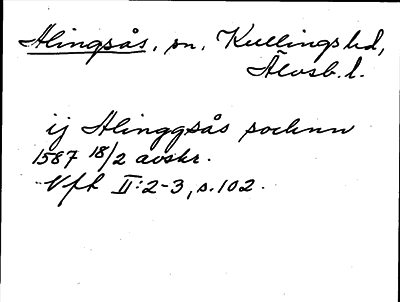 Alingsås, sn, Kullings hd,
Älvsb. l.
ij Alinggsås sochnn
1587 18/2 avskr.
Vft II:2-3, s. 102.